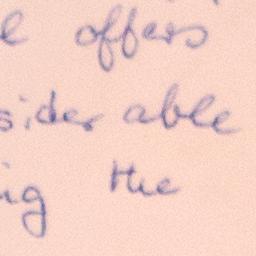 offers
sider able
ing the